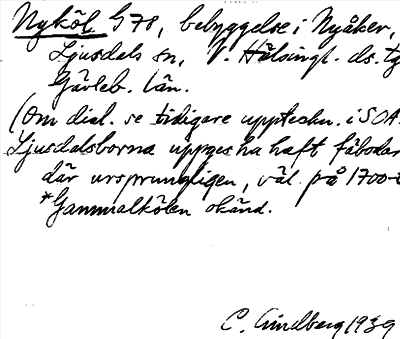 Nyköl G78, bebyggelse i Nyåker,
Ljusdals sn, V. Hälsingl. ds. tg
Gävleb. län.
(Om dial. se tidigare uppteckn. i SOA.
Ljusdalsborna uppges ha haft fäbodar
där ursprungligen, väl. på 1700-t
*Gammalkölen okänd.
C. Lindberg 1939